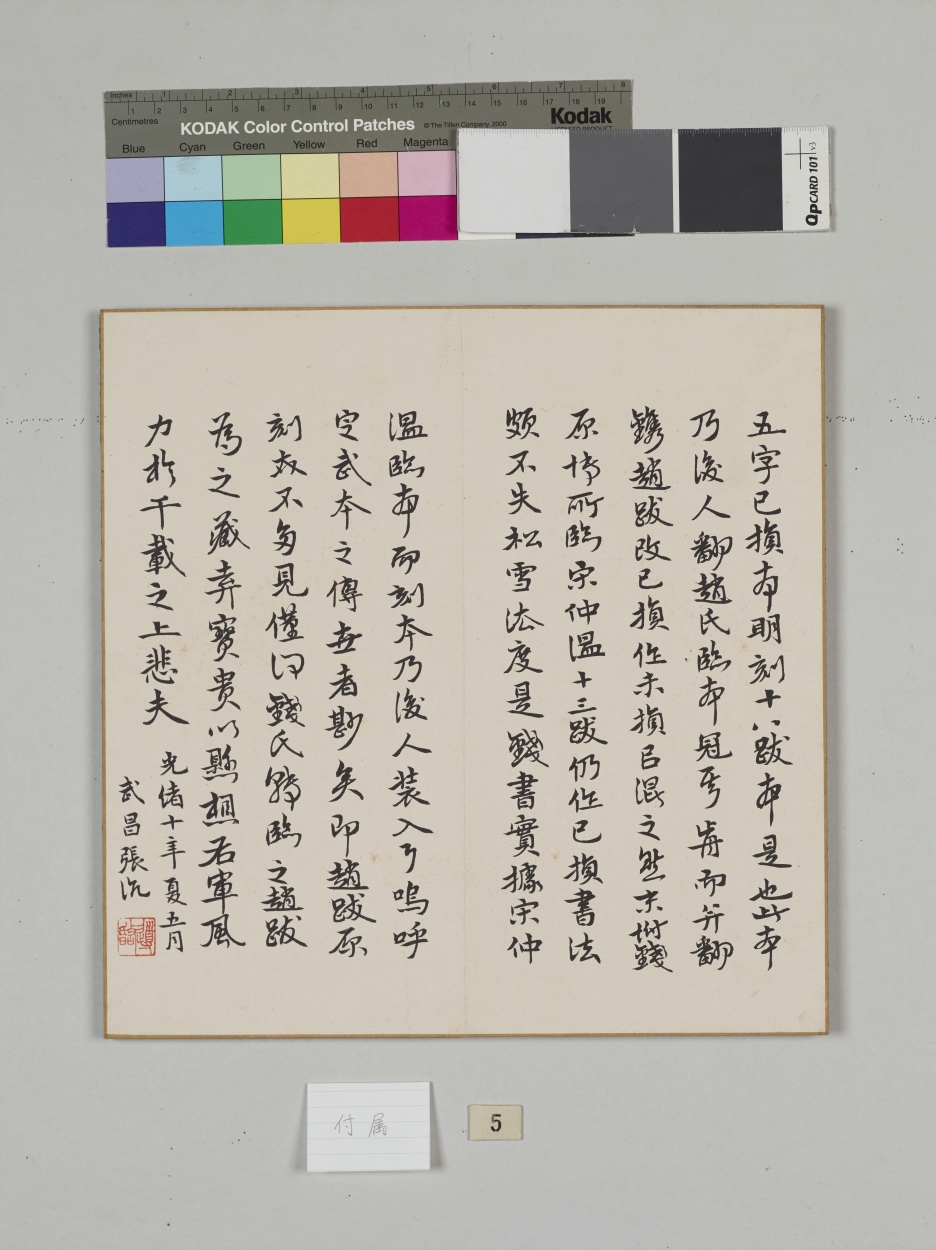 Inches 1 2 3 4 5 6 7 8
1 2 3 4 5 6 7 8 9 10 11 12 13 14 15 16 17 18 19
Centimetres
KODAK Color Control Patches © The Tiffen Company, 2000 Kodak
LICENSED PRODUCT
Blue Cyan Green Yellow Red Magenta
QpCARD 101 v3
五字已損本明刻十八跋本是也此本
乃後人翻趙氏臨本冠焉嵜而并翻
鐫趙跋改已損作未損以混之然末坿錢
原博所臨宋仲溫十三跋仍作已損書法
頗不失松雪法度是錢書實據宋仲
溫臨本而刻本乃後人裝入了嗚呼
定武本之傳世者尟矣即趙跋原
刻亦不多見僅同錢氏轉臨之趙跋
為之藏弆寶貴以懸想右軍風
力於千載之上悲夫
光緒十年夏五月
武昌張沆
付属
5